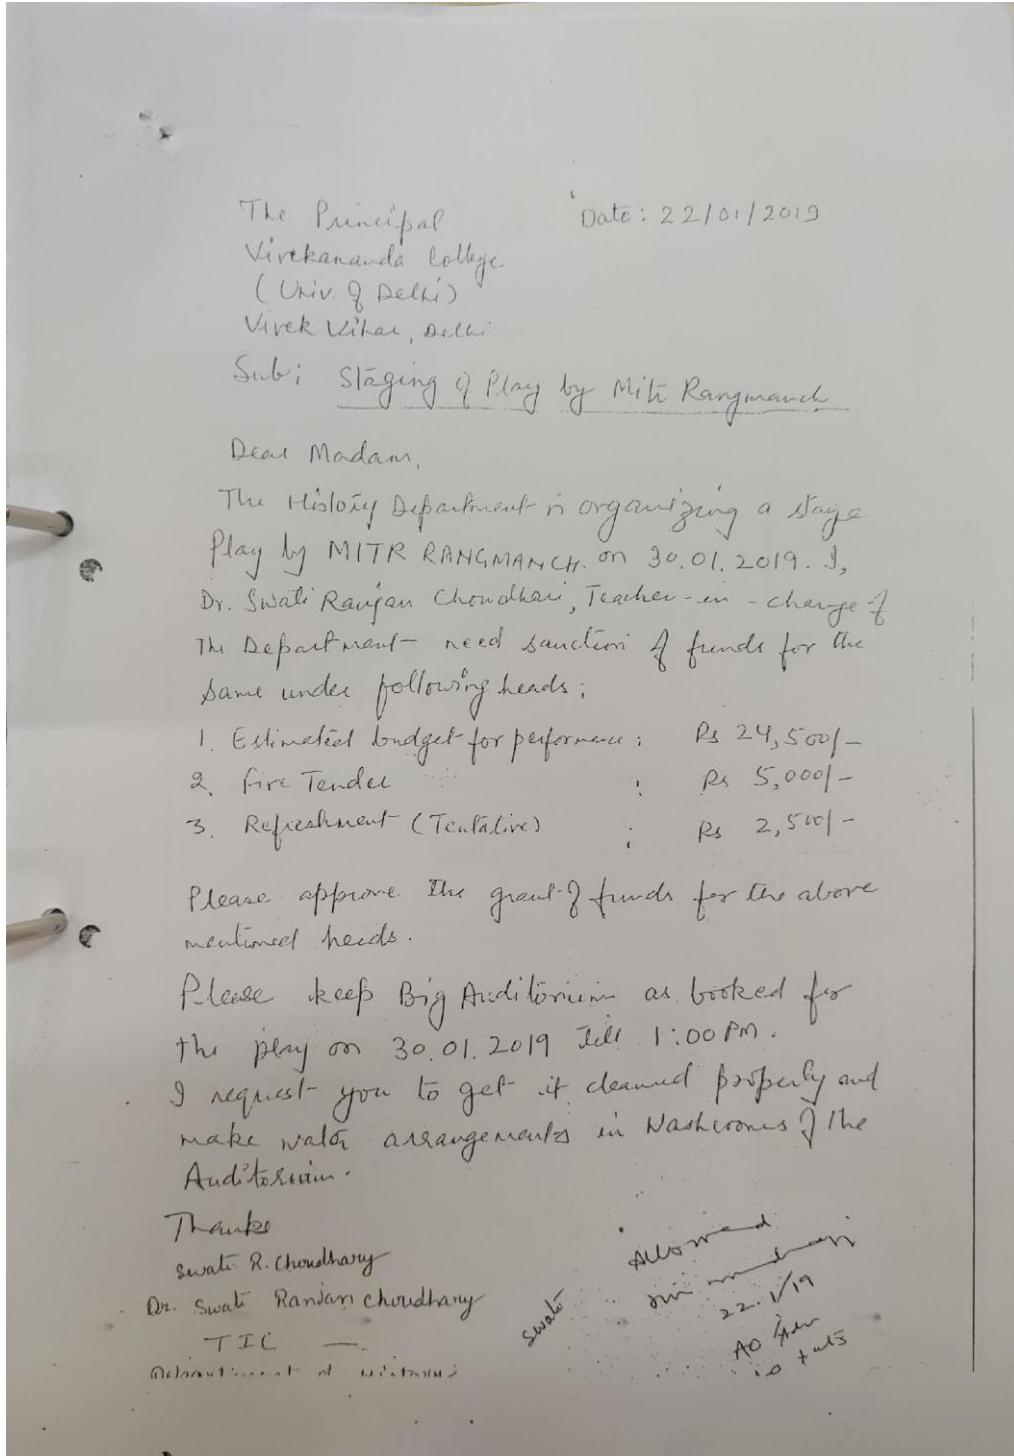 The Principal
Date: 22/01/2019
Vivekananda College
(Univ. of Delhi)
Vivek Vihar, Delhi
Sub: Staging of Play by Mitr Rangmanch
Dear Madam,
The History Department is organizing a stage
Play by MITR RANGMANCH. on 30.01.2019. I,
Dr. Swati Ranjan Choudhari, Teacher-in-charge of
The Department need sanction of funds for the
same under following heads:
1. Estimated budget for performance : Rs 24,500/-
2. Fire Tender : Rs 5,000/-
3. Refreshment (Tentative) : Rs 2,500/-
Please approve the grant of funds for the above
mentioned heads.
Please keep Big Auditorium as booked for
the play on 30.01.2019 till 1:00 PM.
I request you to get it cleaned properly and
make water arrangements in Washrooms of the
Auditorium.
Thanks
Swati R. Choudhary
Dr. Swati Ranjan Choudhary
TIC
Department of History
Allowed
22.1/19
Swati
AO